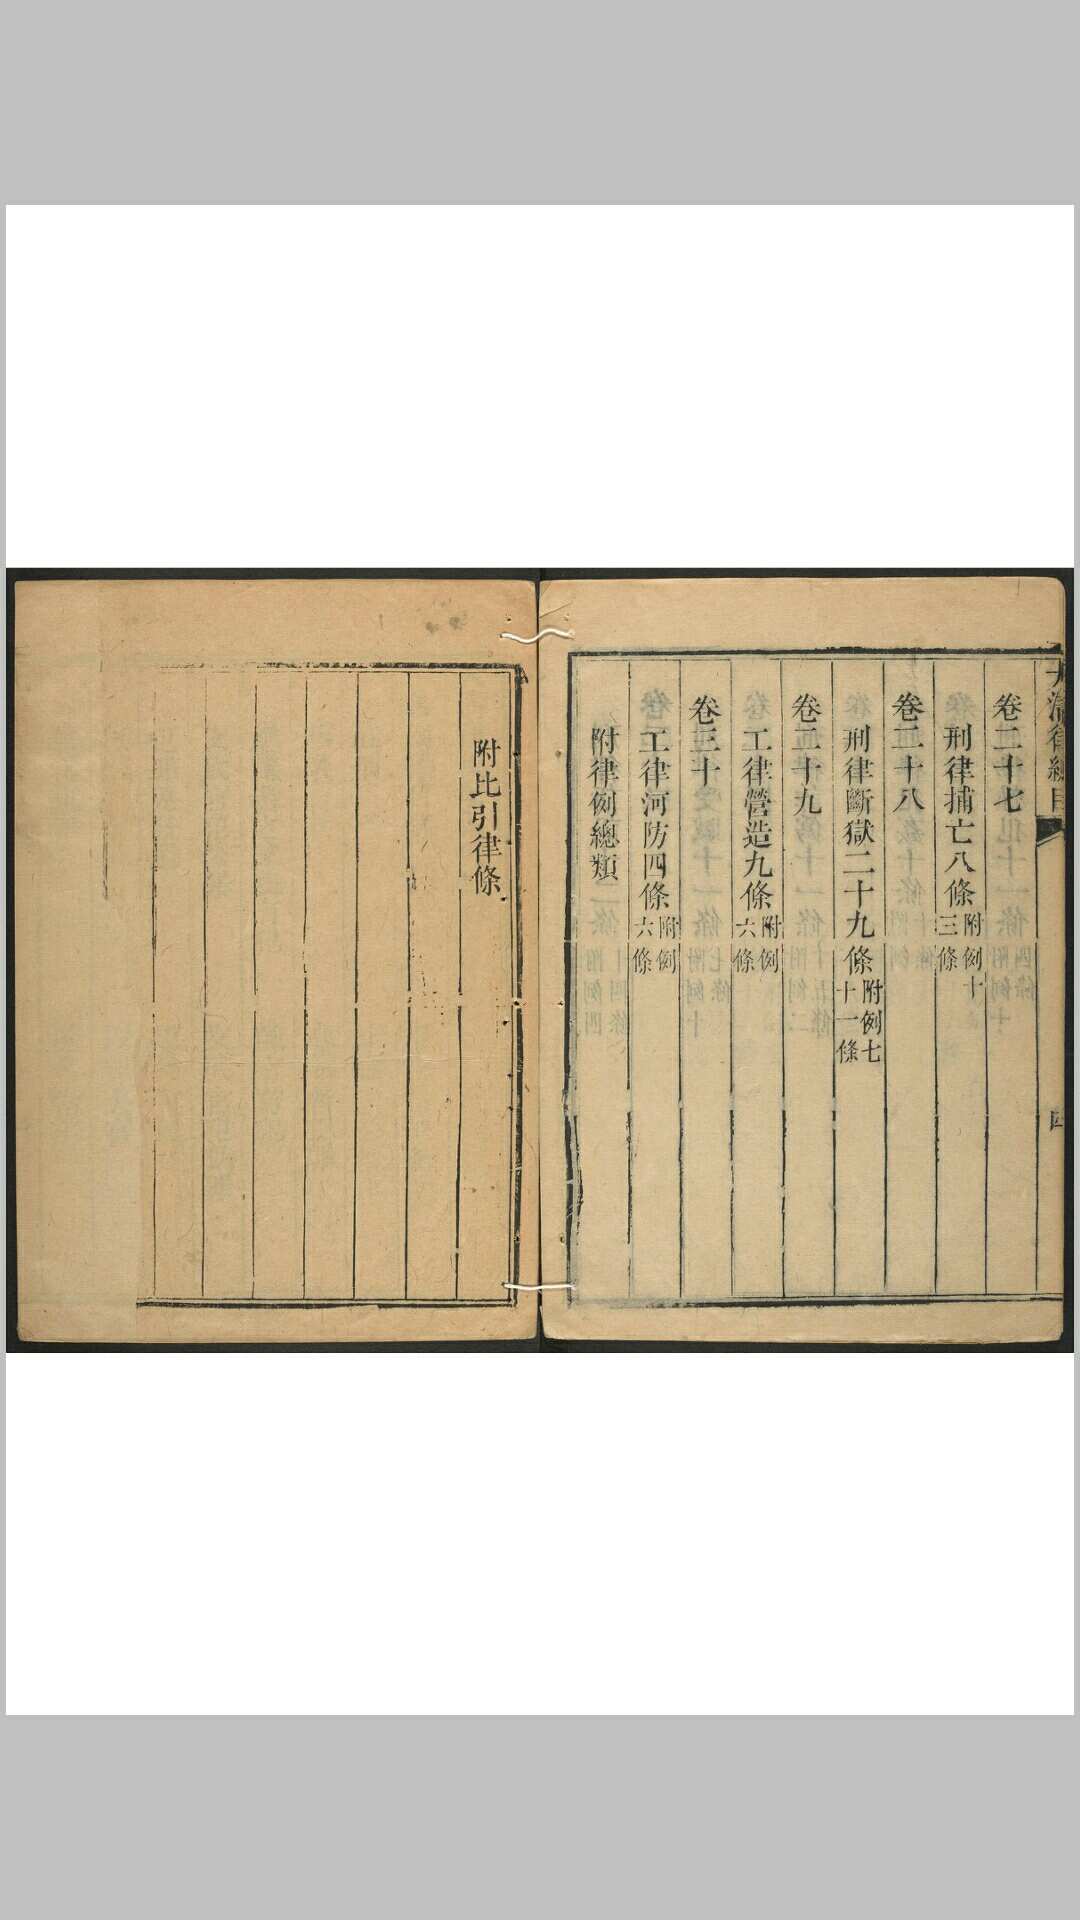 大清律總目
卷二十七
刑律捕亡八條附例十三條
卷二十八
刑律斷獄二十九條附例七十一條
卷二十九
工律營造九條附例六條
卷三十
工律河防四條附例六條
附律例總類
附比引律條